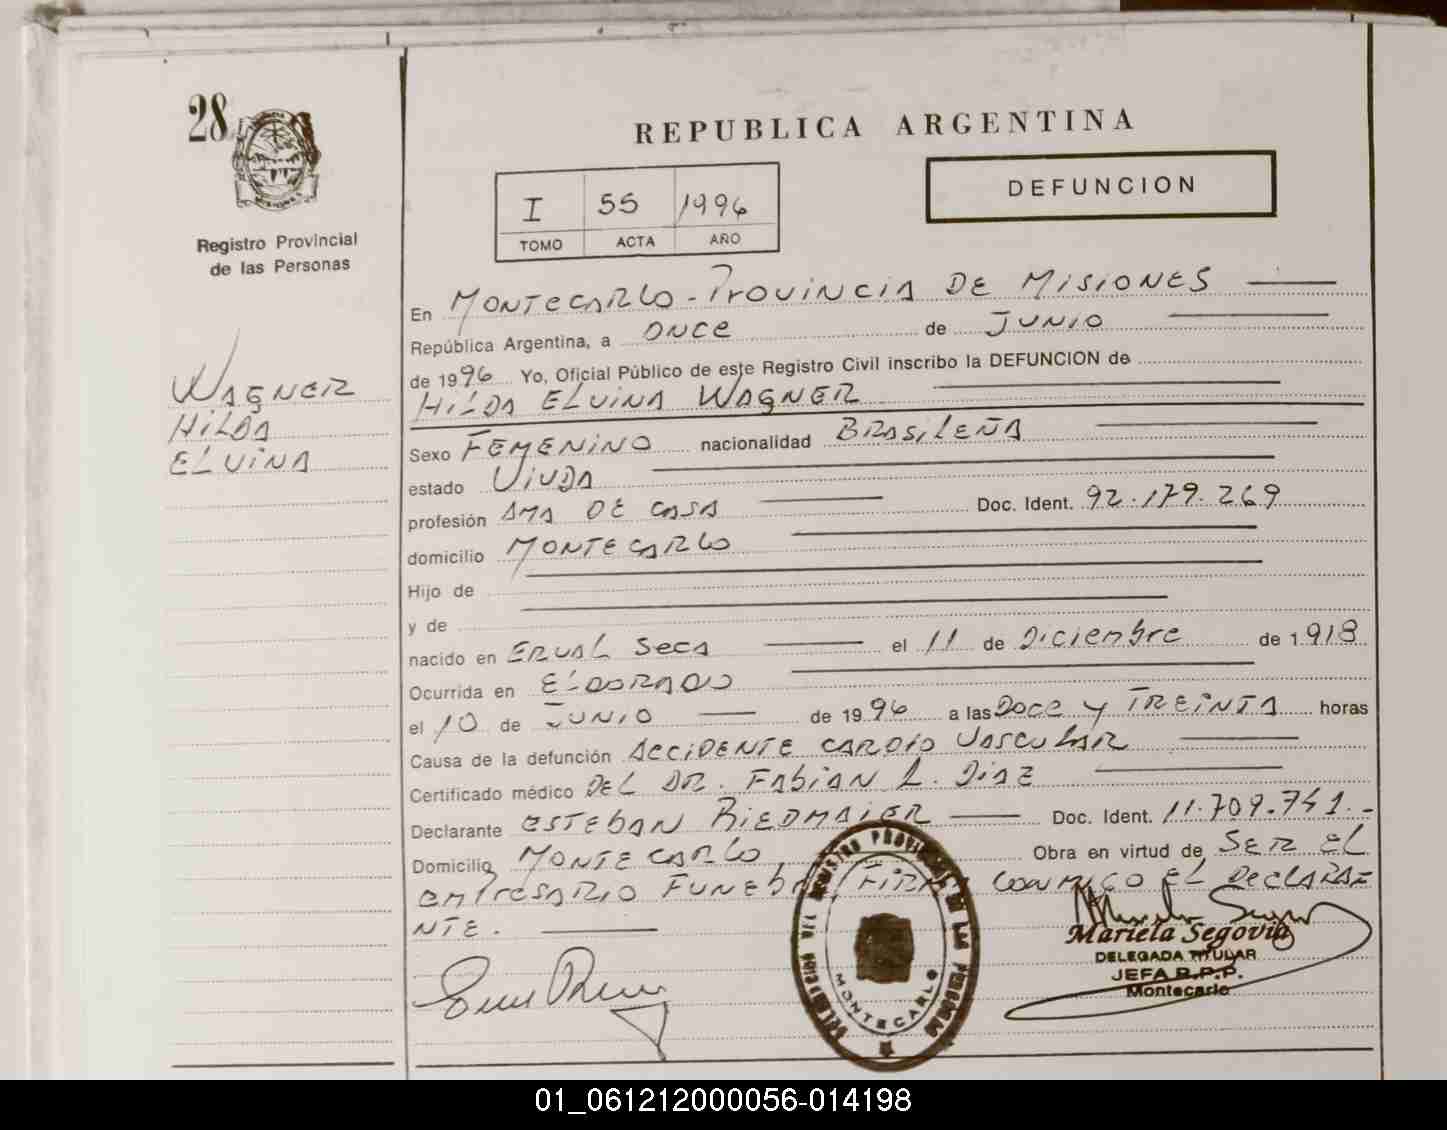 28
REPUBLICA ARGENTINA
DEFUNCION
I 55 1996
TOMO ACTA AÑO
Registro Provincial
de las Personas
WAGNER
HILDA
ELVINA
En MONTECARLO - PROVINCIA DE MISIONES
República Argentina, a ONCE de JUNIO
de 1996 Yo, Oficial Público de este Registro Civil inscribo la DEFUNCION de
HILDA ELVINA WAGNER
Sexo FEMENINO nacionalidad BRASILEÑA
estado VIUDA
profesión AMA DE CASA Doc. Ident. 92.179.269
domicilio MONTECARLO
Hijo de
y de
nacido en ERVAL SECA el 11 de Diciembre de 1.918
Ocurrida en ELDORADO
el 10 de JUNIO de 1996 a las DOCE y TREINTA horas
Causa de la defunción ACCIDENTE CARDIO VASCULAR
Certificado médico DEL DR. FABIAN R. DIAZ
Declarante ESTEBAN RIEDMAIER Doc. Ident. 11.709.741.-
Domicilio MONTECARLO Obra en virtud de SER EL
EMPRESARIO FUNEBRE, FIRMA CONMIGO EL DECLARA
NTE.
DELEGACION DEL REGISTRO PROVINCIAL DE LAS PERSONAS
MONTECARLO
Mariela Segovia
DELEGADA TITULAR
JEFA R.P.P.
Montecarlo
01_061212000056-014198